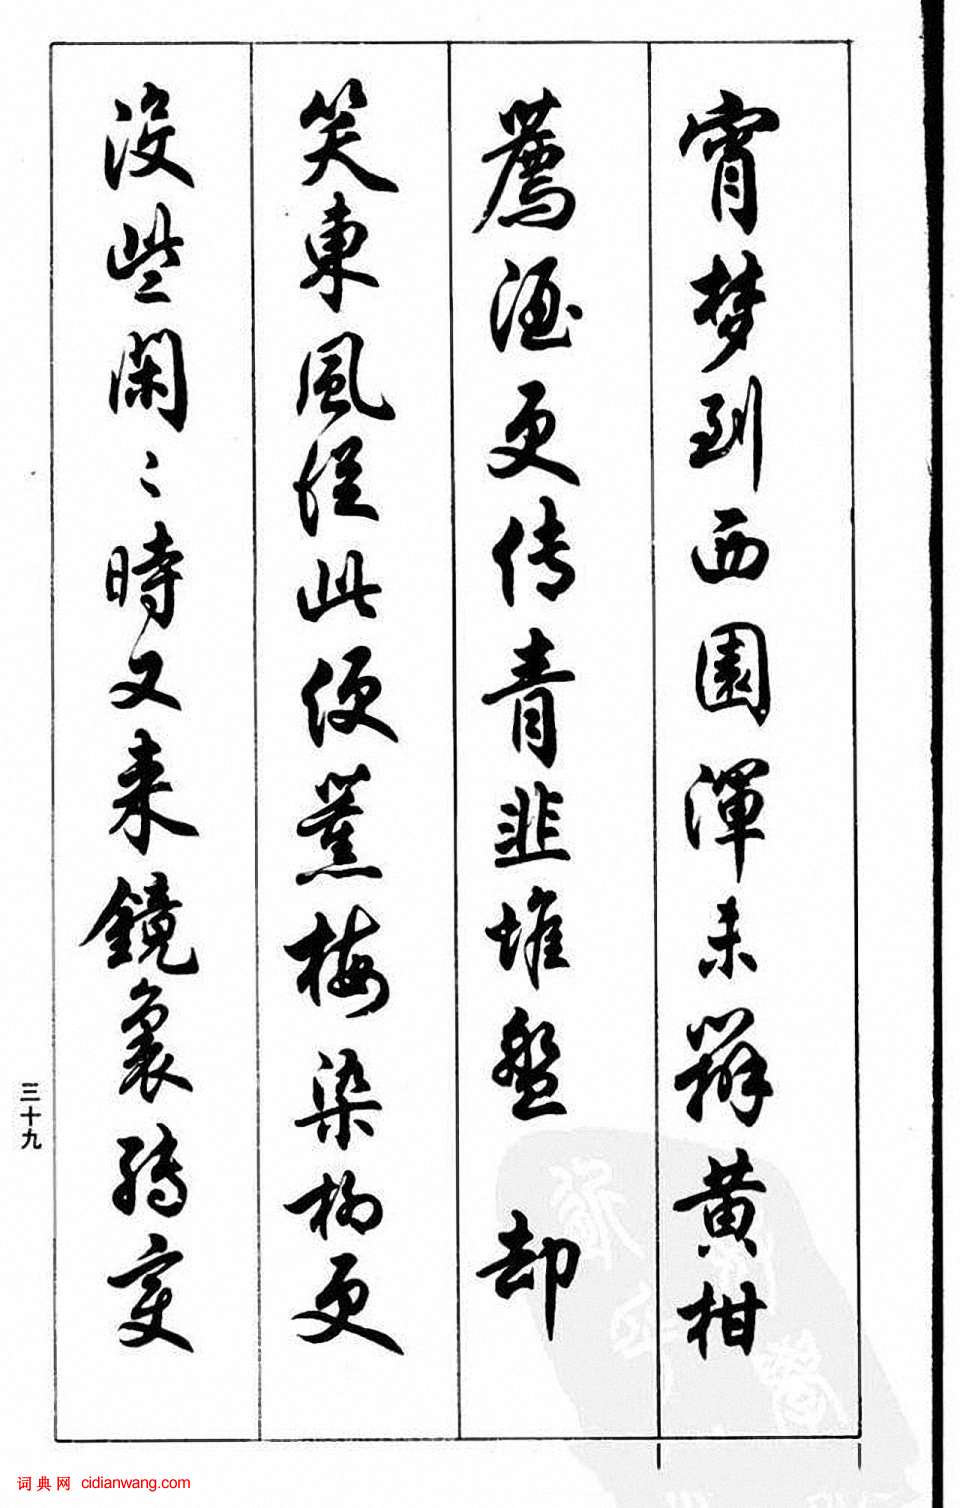 宵梦到西園渾未辦黄柑
薦酒更传青韭堆盤却
笑東風從此便薰梅染柳更
没些閑〻時又来鏡裏轉变
三十九
词典网 cidianwang.com